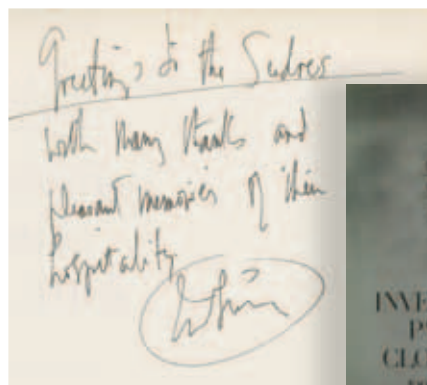 Greetings to the Sudres
with many thanks and
pleasant memories of their
hospitality
INVE
P
CLO